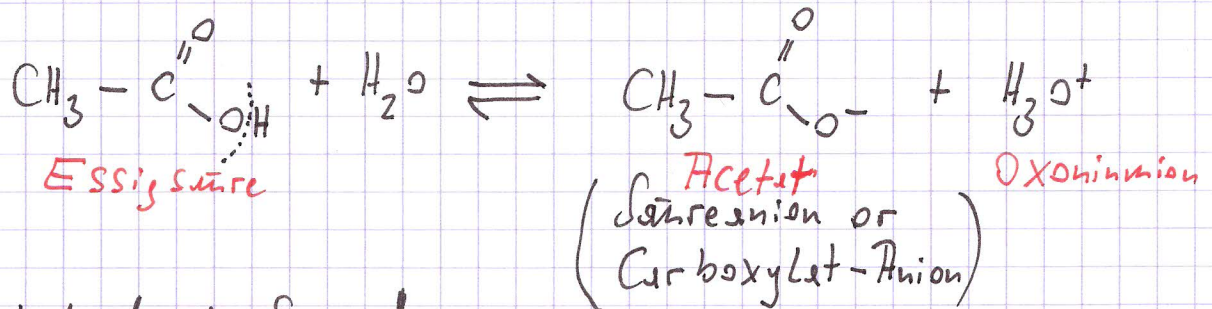 CH₃ – C =O –OH + H₂O ⇌ CH₃ – C =O –O⁻ + H₃O⁺
Essigsäure Acetat Oxoniumion
(Säureanion or
Carboxylat-Anion)